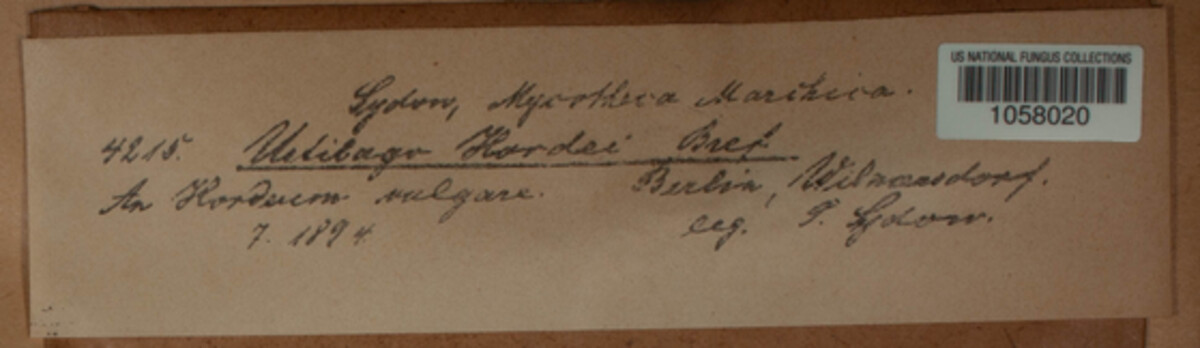 US NATIONAL FUNGUS COLLECTIONS
1058020
Sydow, Mycotheca Marchica.
4215. Ustilago Hordei Bref.
An Hordeum vulgare. Berlin, Wilmersdorf.
7. 1894. leg. P. Sydow.